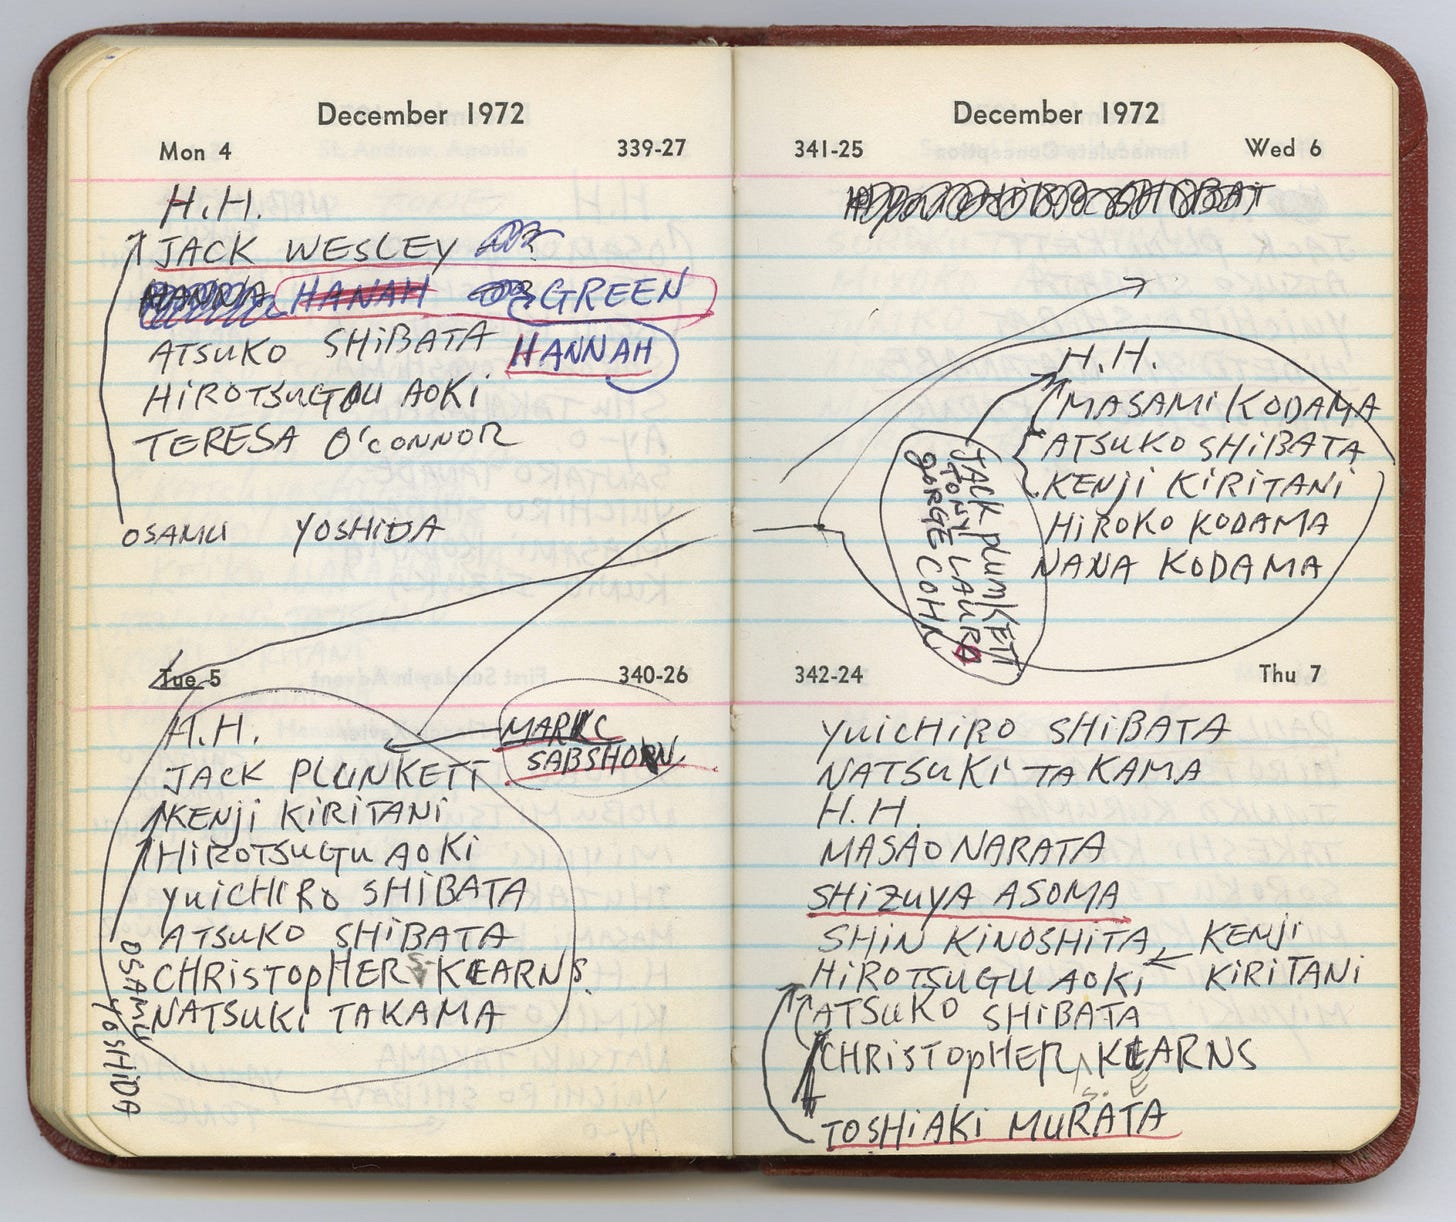 December 1972
Mon 4 339-27
H.H.
JACK WESLEY
HANAH GREEN
ATSUKO SHiBATA HANNAH
HiROTSUGU AOKi
TERESA O'CONNOR
OSAMU YOSHiDA
Tue 5 340-26
H.H. MARK
SABSHORN.
JACK PLUNKETT
KENji KiRiTANi
HiROTSUGU AOKi
YUiCHiRo SHiBATA
ATSUKO SHiBATA
CHRiSTOpHER KEARNS
NATSUKi TAKAMA
OSAMU YOSHiDA
December 1972
341-25 Wed 6
H.H.
MASAMi KODAMA
ATSUKO SHiBATA
KENji KiRiTANi
HiROKO KODAMA
NANA KODAMA
JACK plUMKETT
TONY LAURO
gORGE COHN
342-24 Thu 7
YUiCHiRO SHiBATA
NATSUKi TAKAMA
H.H.
MASAO NARATA
SHiZUYA ASOMA
SHiN KiNOSHiTA KENji
HiROTSUGU AOKi KiRiTANi
ATSUKO SHiBATA
CHRiSTOpHER KEARNS
TOSHiAKi MURATA